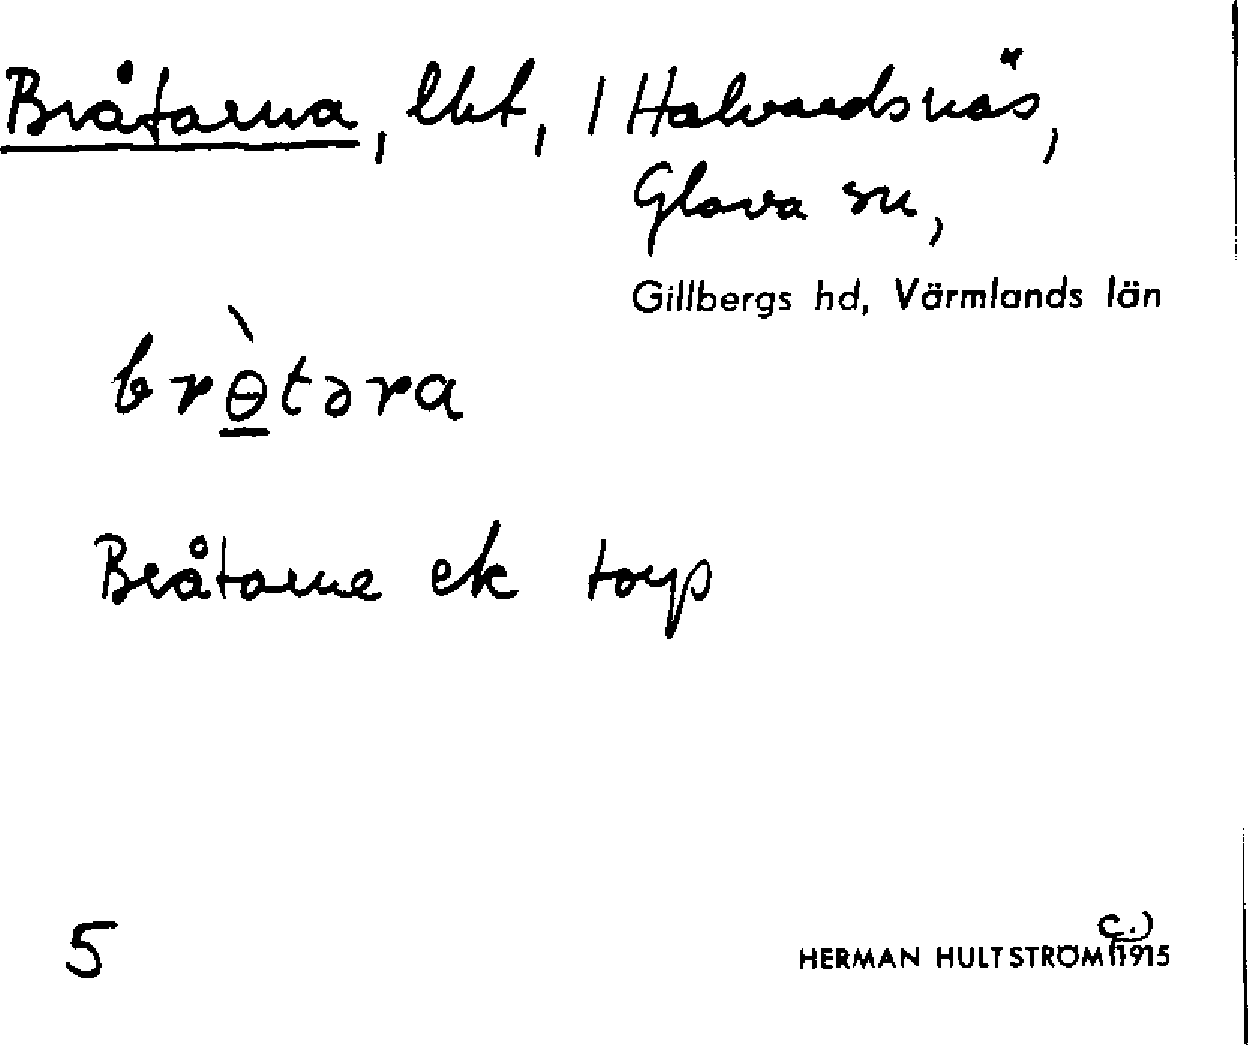 Bråtarna, lht, / Halvardsnäs,
Glava sn,
Gillbergs hd, Värmlands län
brɵ̀təra
Bråtarne ek torp
5
HERMAN HULTSTRÖM (c.) 1915